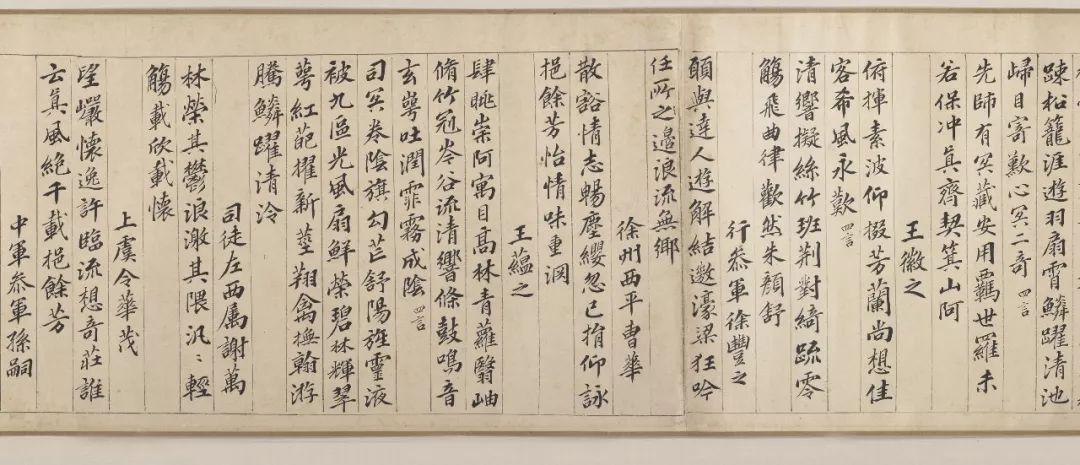 踈松籠涯遊羽扇霄鱗躍清池
歸目寄歎心冥二奇 四言
先師有冥藏安用羈世羅未
若保冲真齊契箕山阿
王徽之
俯揮素波仰掇芳蘭尚想佳
客希風永歎 四言
清響擬絲竹班荆對綺疏零
觴飛曲律歡然朱顏舒
行叅軍徐豐之
願與達人遊解結邀濠梁狂吟
任所之邉浪流無鄉
徐州西平曹華
散豁情志暢塵纓忽已捐仰詠
挹餘芳怡情味重渊
王蘊之
肆眺崇阿寓目高林青蘿翳岫
脩竹冠岑谷流清響條鼓鳴音
玄崿吐潤霏霧成陰 四言
司冥卷陰旗勾芒舒陽旌靈液
被九區光風扇鮮榮碧林輝翠
萼紅葩擢新莖翔禽撫翰游
騰鱗躍清泠
司徒左西属謝萬
林榮其鬱浪激其隈汎〻輕
觴載欣載懷
上虞令華茂
望巖懷逸許臨流想奇莊誰
云真風絶千載挹餘芳
中軍叅軍孫嗣